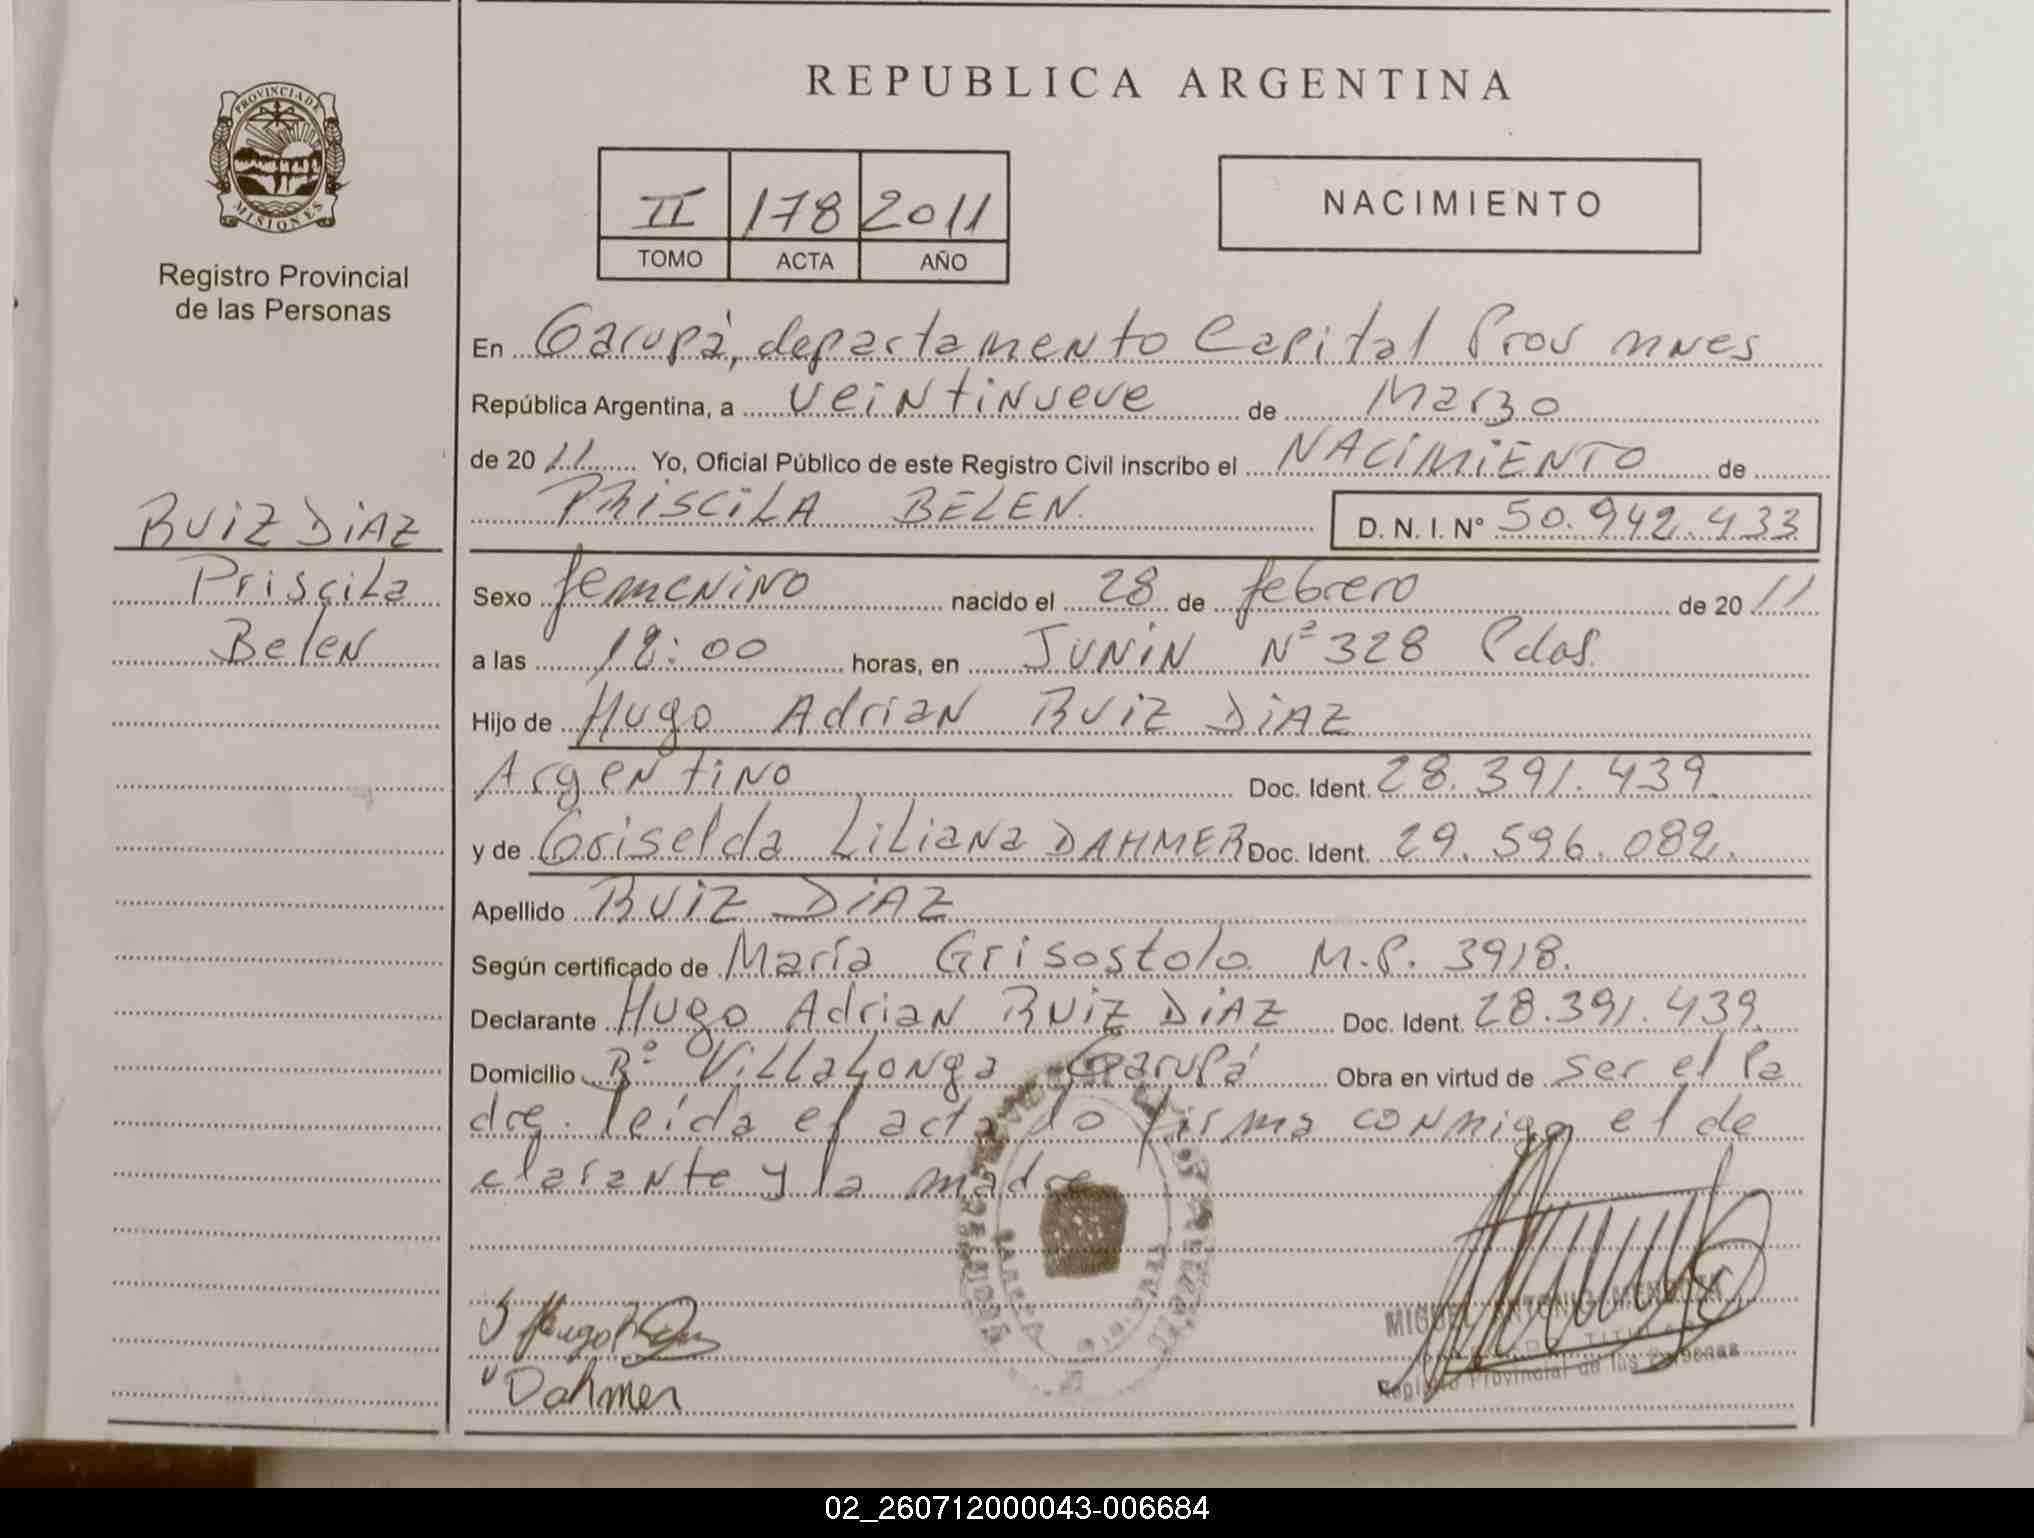 REPUBLICA ARGENTINA
PROVINCIA DE
MISIONES
Registro Provincial
de las Personas
II 178 2011
TOMO ACTA AÑO
NACIMIENTO
En Garupá, departamento Capital Prov mnes
República Argentina, a veintinueve de Marzo
de 20 11 Yo, Oficial Público de este Registro Civil inscribo el NACIMIENTO de
PRISCILA BELEN
D. N. I. N° 50.942.433
RUIZ DIAZ
Priscila
Belen
Sexo femenino nacido el 28 de febrero de 20 11
a las 12:00 horas, en JUNIN Nº 328 Pdas.
Hijo de Hugo Adrian RUIZ DIAZ
Argentino Doc. Ident. 28.391.439.
y de Griselda Liliana DAHMER Doc. Ident. 29.596.082.
Apellido RUIZ DIAZ
Según certificado de María Grisostolo M.P. 3918.
Declarante Hugo Adrian RUIZ DIAZ Doc. Ident. 28.391.439.
Domicilio Bº Villalonga Garupá Obra en virtud de ser el Pa
dre. leída el acta do firma conmigo el de
clarante y la madre
Hugo
Dahmer
MIGUEL ANTONIO MENDOZA
TITULAR
Registro Provincial de las Personas
02_260712000043-006684